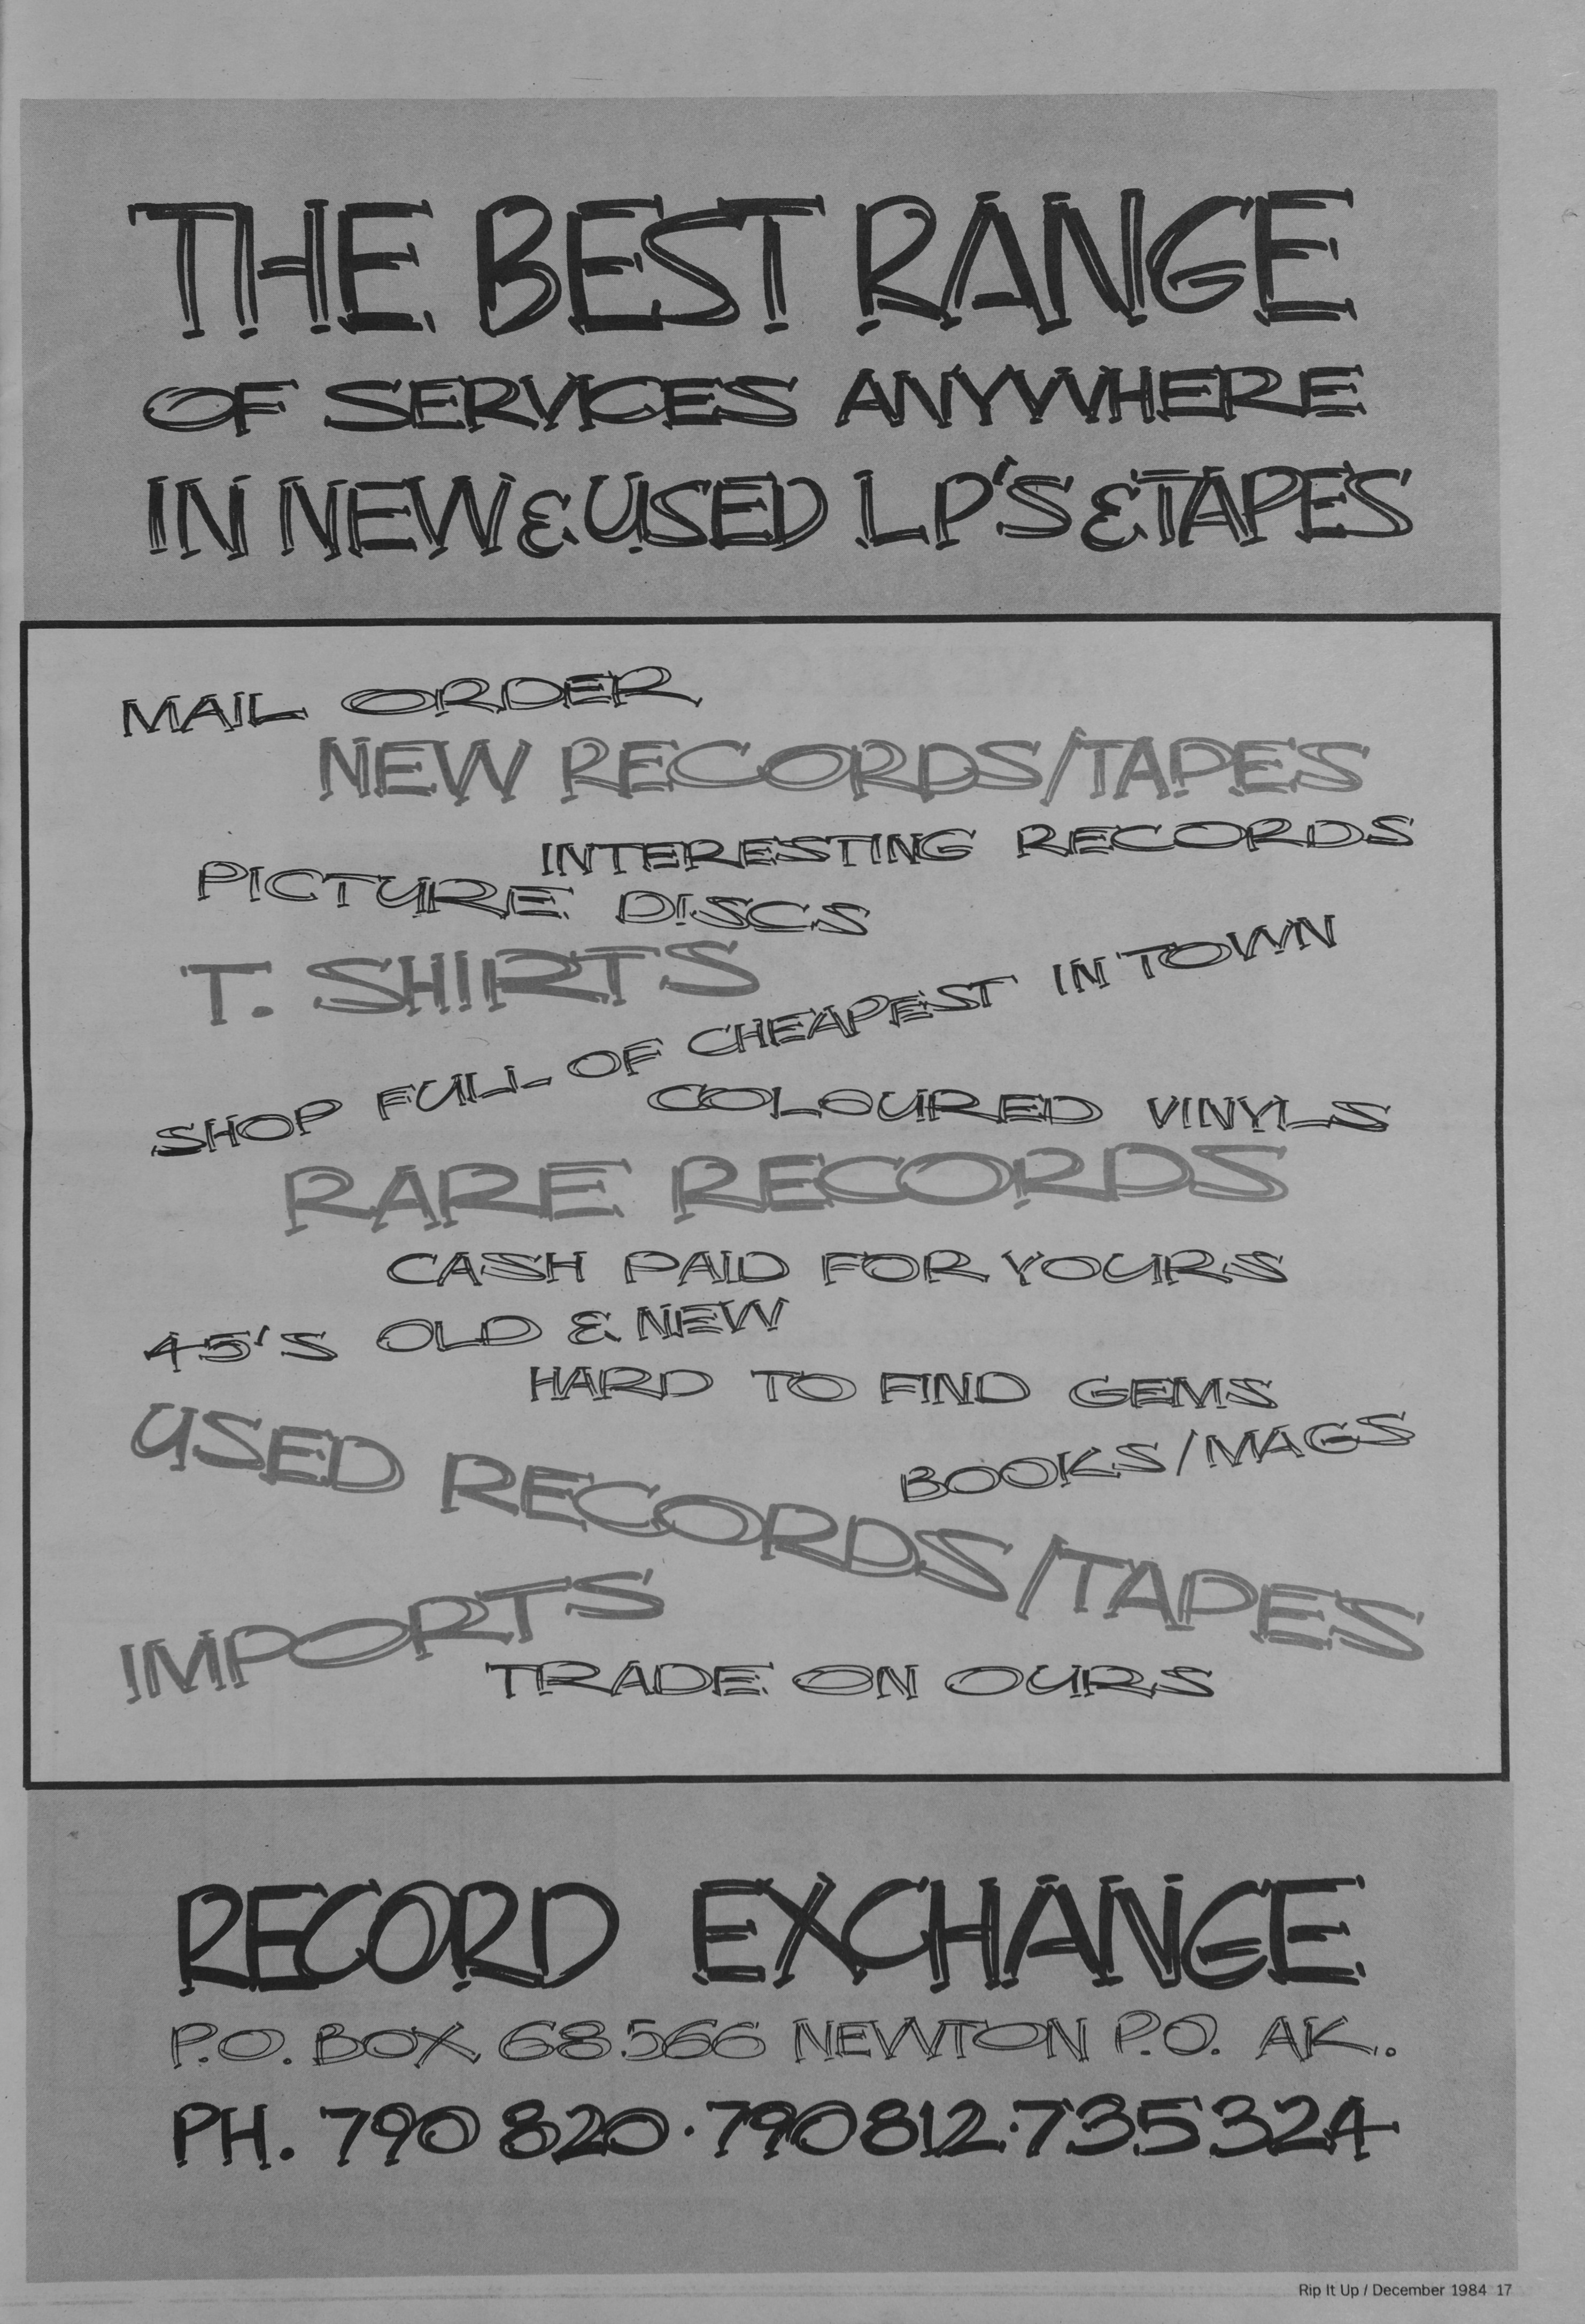 THE BEST RANGE
OF SERVICES ANYWHERE
IN NEW & USED LP'S & TAPES
MAIL ORDER
NEW RECORDS/TAPES
INTERESTING RECORDS
PICTURE DISCS
T. SHIRTS
SHOP FULL OF CHEAPEST IN TOWN
COLOURED VINYLS
RARE RECORDS
CASH PAID FOR YOURS
45'S OLD & NEW
HARD TO FIND GEMS
USED RECORDS/TAPES
BOOKS/MAGS
IMPORTS
TRADE ON OURS
RECORD EXCHANGE
P.O. BOX 68566 NEWTON P.O. AK.
PH. 790 820·790812·735324
Rip It Up / December 1984 17